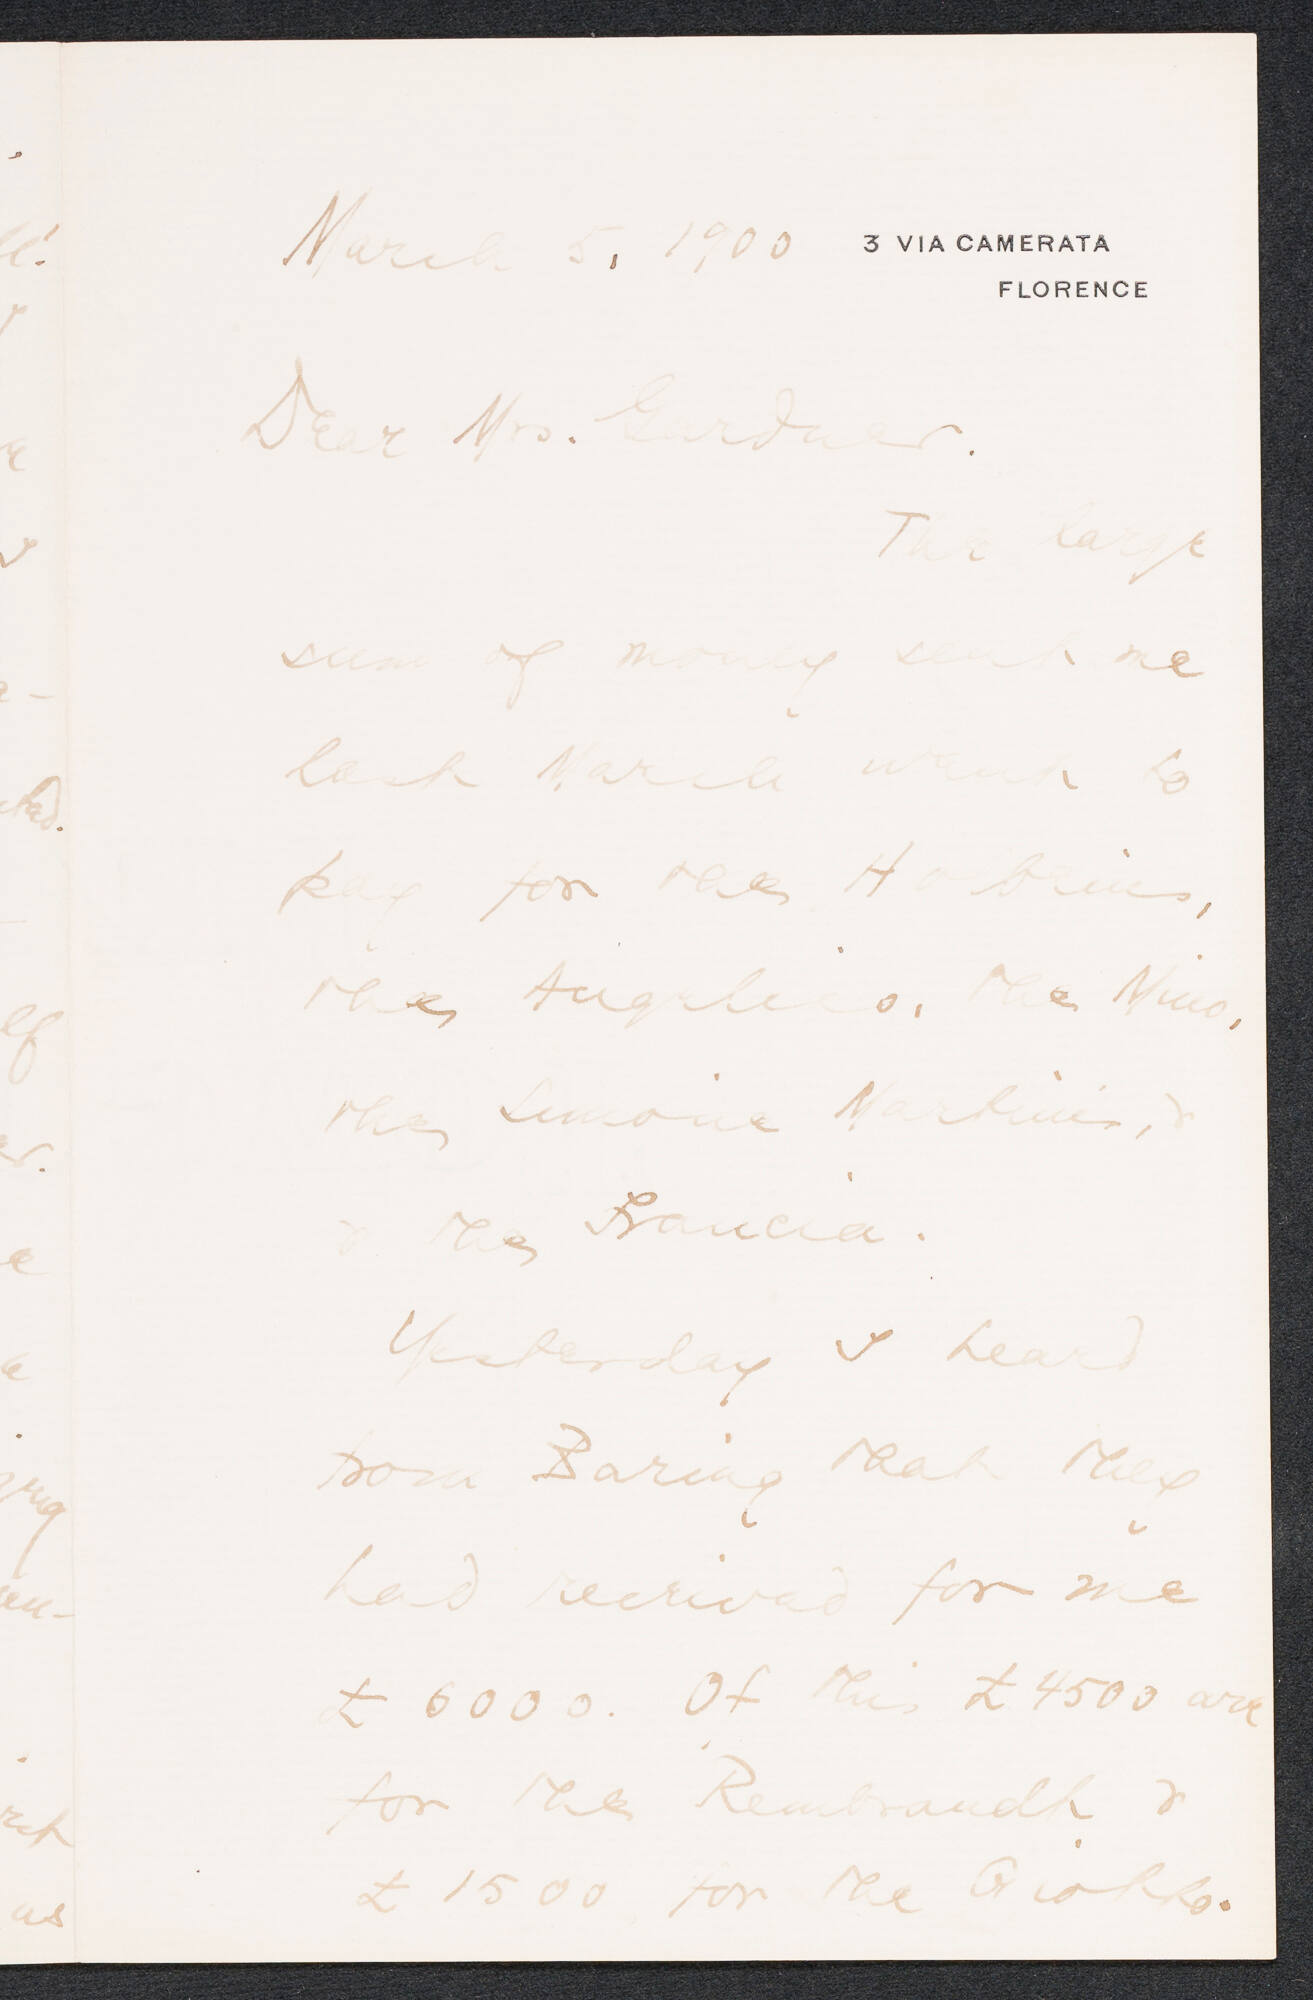 March 5, 1900
3 VIA CAMERATA
FLORENCE
Dear Mrs. Gardner.
The large
sum of money sent me
last March went to
pay for the Holbeins,
the Angelico, the Mino,
the Simone Martini, &
& the Francia.
Yesterday I heard
from Baring that they
had received for me
£ 6000. Of this £ 4500 are
for the Rembrandt &
£ 1500 for the Giotto.